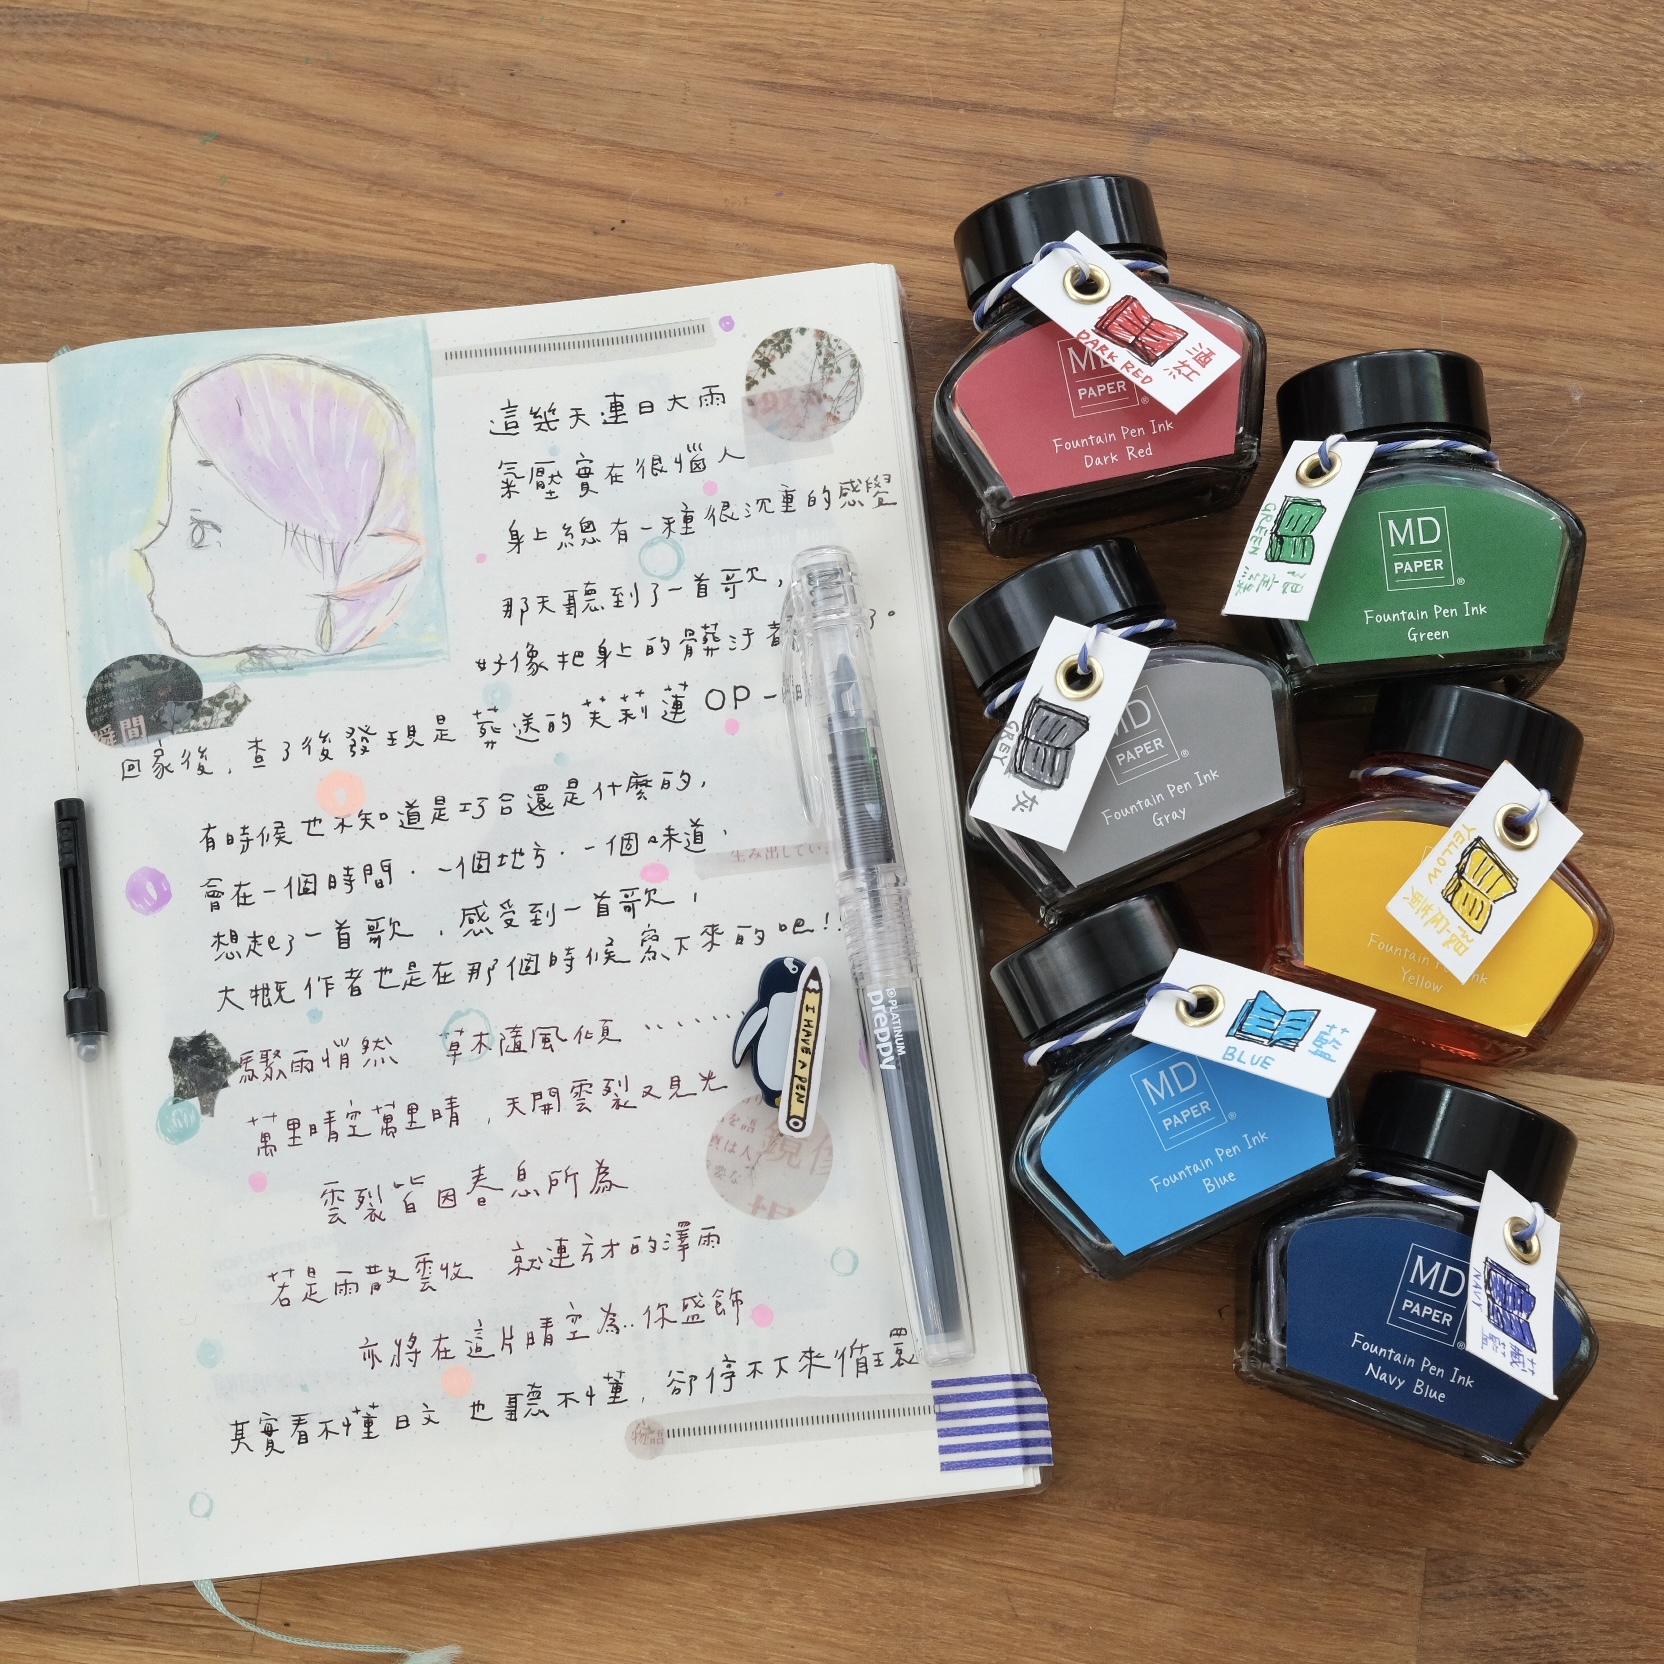 這幾天連日大雨
氣壓實在很惱人
身上總有一種很沉重的感覺
那天聽到了一首歌,
好像把身上的髒汙都 了。
回家後,查了後發現是葬送的芙莉蓮 OP -
有時候也不知道是巧合還是什麼的,
會在一個時間.一個地方.一個味道,
想起了一首歌,感受到一首歌,
大概作者也是在那個時候寫下來的吧!!
驟雨悄然 草木隨風傾......
萬里晴空萬里晴,天開雲裂又見光
雲裂皆因春息所為
若是雨散雲收 就連方才的澤雨
亦將在這片晴空為..你盛飾
其實看不懂日文 也聽不懂,卻停不下來循環
瞬間
生み出してい
物語
I HAVE A PEN
PLATINUM
preppy
DARK RED
酒紅
MD
PAPER
Fountain Pen Ink
Dark Red
GREEN
墨綠
MD
PAPER
Fountain Pen Ink
Green
GREY
灰
MD
PAPER
Fountain Pen Ink
Gray
YELLOW
Fountain Pen Ink
Yellow
BLUE
藍
MD
PAPER
Fountain Pen Ink
Blue
NAVY
藏藍
MD
PAPER
Fountain Pen Ink
Navy Blue